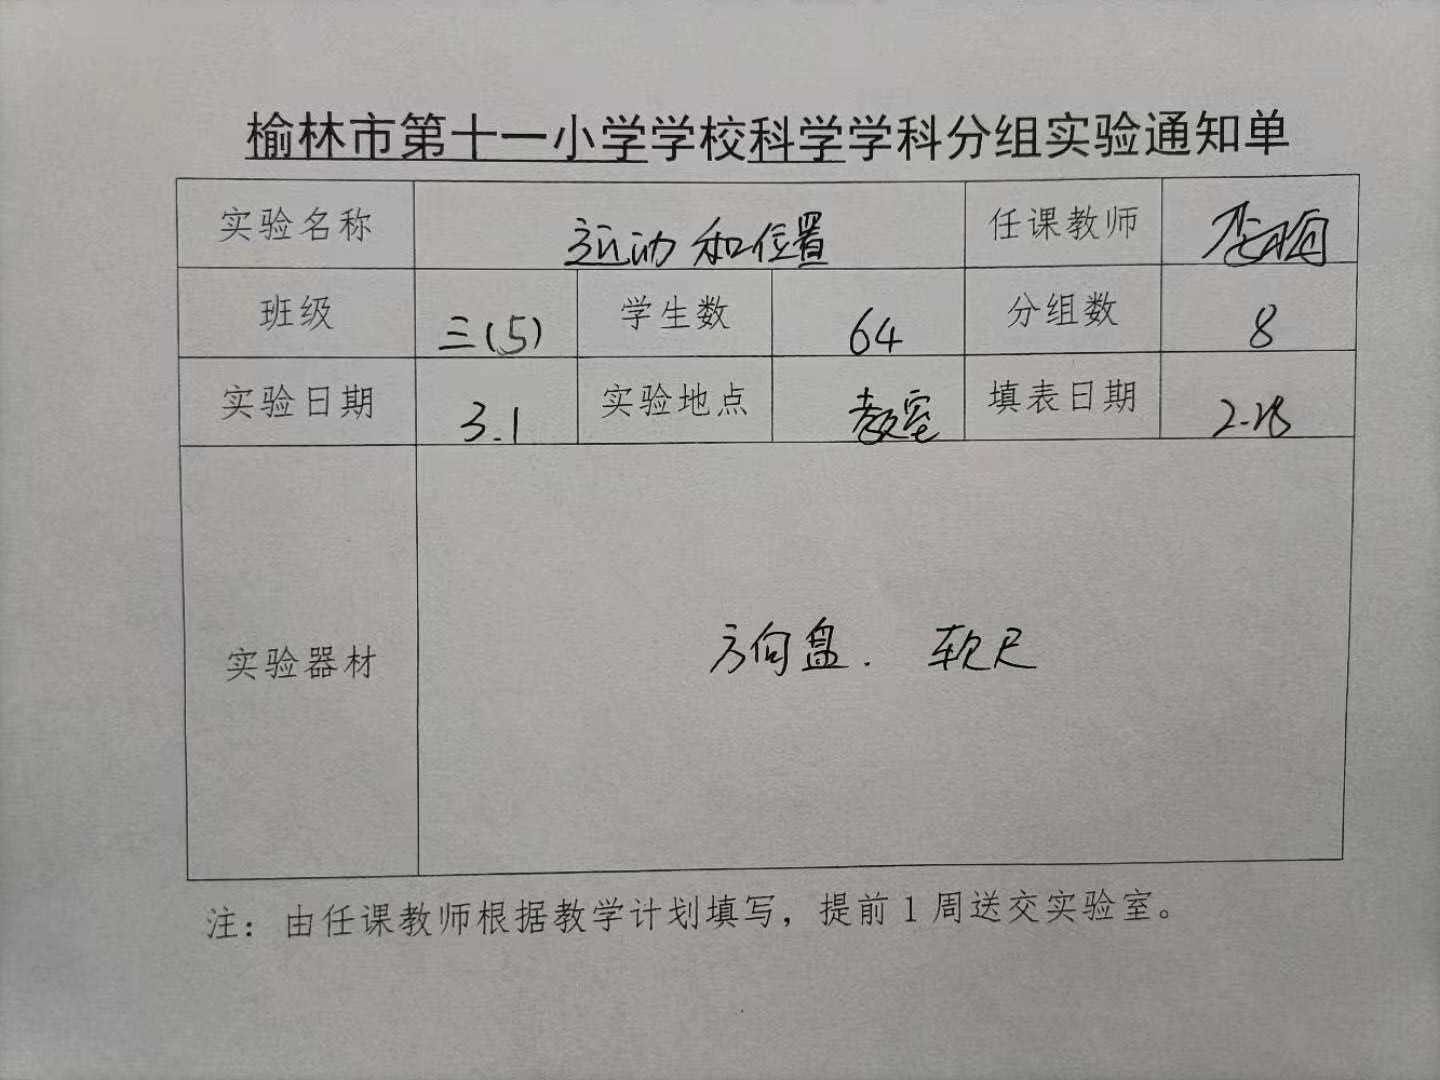 榆林市第十一小学学校科学学科分组实验通知单
实验名称 运动和位置 任课教师
班级 三(5) 学生数 64 分组数 8
实验日期 3.1 实验地点 教室 填表日期
实验器材 方向盘. 软尺
注：由任课教师根据教学计划填写，提前1周送交实验室。